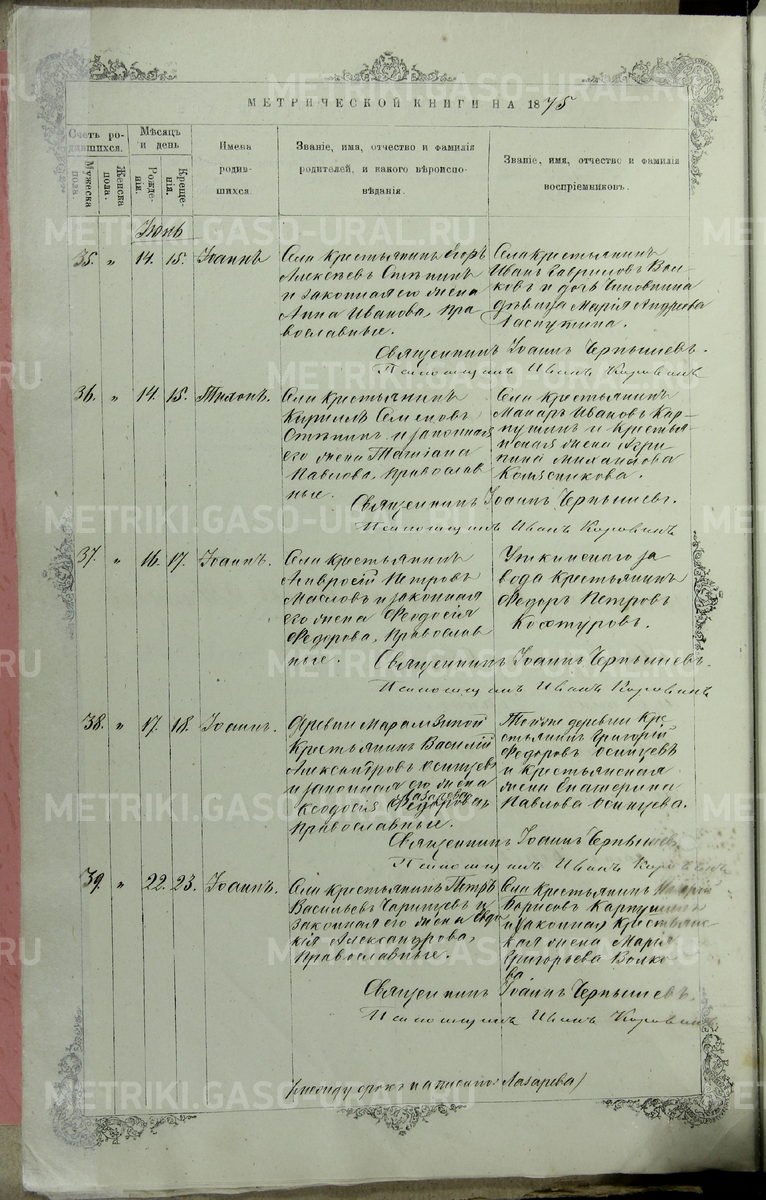 МЕТРИЧЕСКОЙ КНИГИ НА 1875
Счетъ ро-
дившихся.
Мужеска
пола
Женска
пола.
Мѣсяцъ
и день
Рожде-
нія.
Креще-
нія.
Имена
родив-
шихся.
Званіе, има, отчество и фамилія
родителей, и какого вѣроиспо-
вѣданія.
Званіе, имя, отчество и фамилія
воспріемниковъ.
Іюнь
35. " 14. 15. Іоаннъ
Села крестьянинъ Егоръ
Алексѣевъ Стѣнинъ
и законная его жена
Анна Иванова, пра
вославные.
Села крестьянинъ
Иванъ Гавриловъ Вол-
ковъ и дочь чиновника
дѣвица Марія Андреева
Ласпутина.
Священникъ Іоаннъ Чернышевъ.
Псаломщикъ Иванъ Коровинъ
36. " 14. 15. Тихонъ.
Села крестьянинъ
Кириллъ Семеновъ
Стѣнинъ и законная
его жена Татіана
Павлова, православ
ные.
Села крестьянинъ
Макаръ Ивановъ Кар-
пушинъ и крестья-
нская жена Агри-
пина Михайлова
Колесникова.
Священникъ Іоаннъ Чернышевъ.
Псаломщикъ Иванъ Коровинъ
37. " 16. 17. Іоаннъ.
Села крестьянинъ
Амвросій Петровъ
Масловъ и законная
его жена Феодосія
Федорова, православ
ные.
Уткинскаго за
вода крестьянинъ
Федоръ Петровъ
Священникъ Іоаннъ Чернышевъ.
Псаломщикъ Иванъ Коровинъ
38. " 17. 18. Іоаннъ.
Деревни Марамзиной
крестьянинъ Василій
Александровъ Осинцевъ
и законная его жена
Лазарева
Ксеодосія Федорова,
православные.
Тойже деревни кре
стьянинъ Григорій
Федоровъ Осинцевъ
и крестьянская
жена Екатерина
Павлова Осинцева.
Священникъ Іоаннъ Чернышевъ.
Псаломщикъ Иванъ Коровинъ
39. " 22. 23. Іоаннъ.
Села крестьянинъ Петръ
Васильевъ и
законная его жена
Александрова,
православные.
Села крестьянинъ
Борисовъ Карпушинъ
и законная крестьянс
кая жена Марія
Григорьева Волко
ва.
Священникъ Іоаннъ Чернышевъ.
Псаломщикъ Иванъ Коровинъ
/между строкъ написано: Лазарева/
METRIKI.GASO-URAL.RU